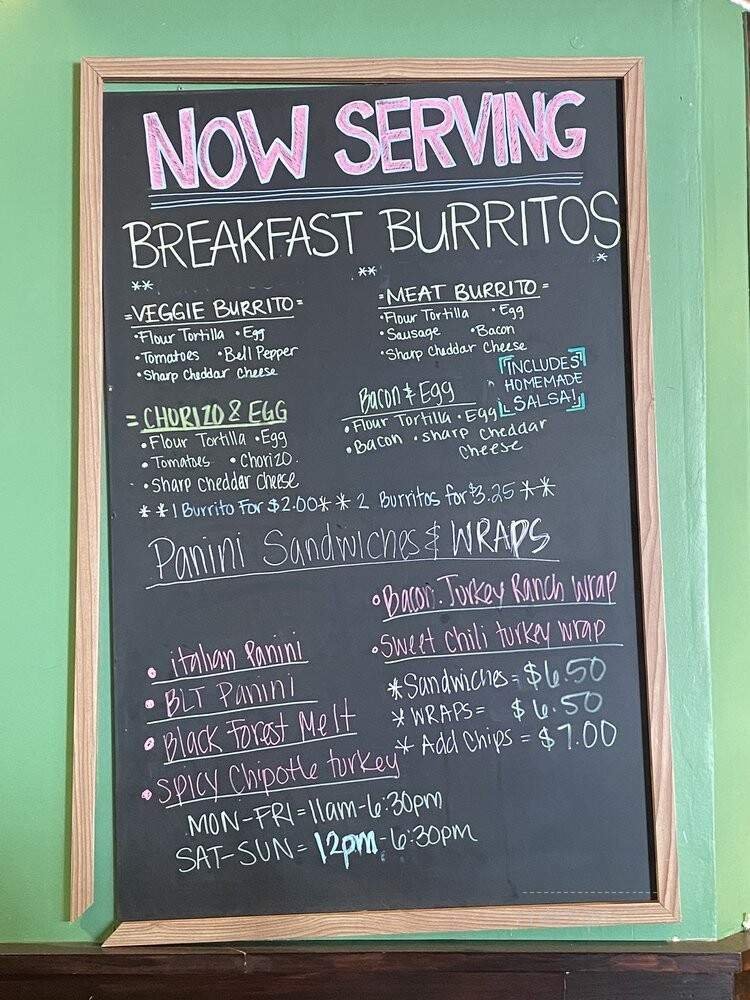 NOW SERVING
BREAKFAST BURRITOS
*
**
=VEGGIE BURRITO=
•Flour Tortilla •Egg
•Tomatoes •Bell Pepper
•Sharp Cheddar Cheese
**
=MEAT BURRITO=
•Flour Tortilla •Egg
•Sausage •Bacon
•Sharp Cheddar Cheese
INCLUDES
HOMEMADE
SALSA!
=CHORIZO & EGG
•Flour Tortilla •Egg
•Tomatoes •Chorizo
•Sharp Cheddar Cheese
Bacon & Egg
•Flour Tortilla •Egg
•Bacon •Sharp Cheddar
Cheese
**1 Burrito For $2.00** 2 Burritos for $3.25**
Panini Sandwiches & WRAPS
• Italian Panini
• BLT Panini
• Black Forest Melt
• Spicy Chipotle turkey
•Bacon.Turkey Ranch Wrap
•Sweet Chili turkey wrap
*Sandwiches= $6.50
*WRAPS= $6.50
* Add Chips = $7.00
MON-FRI=11am-6:30pm
SAT-SUN= 12pm-6:30pm